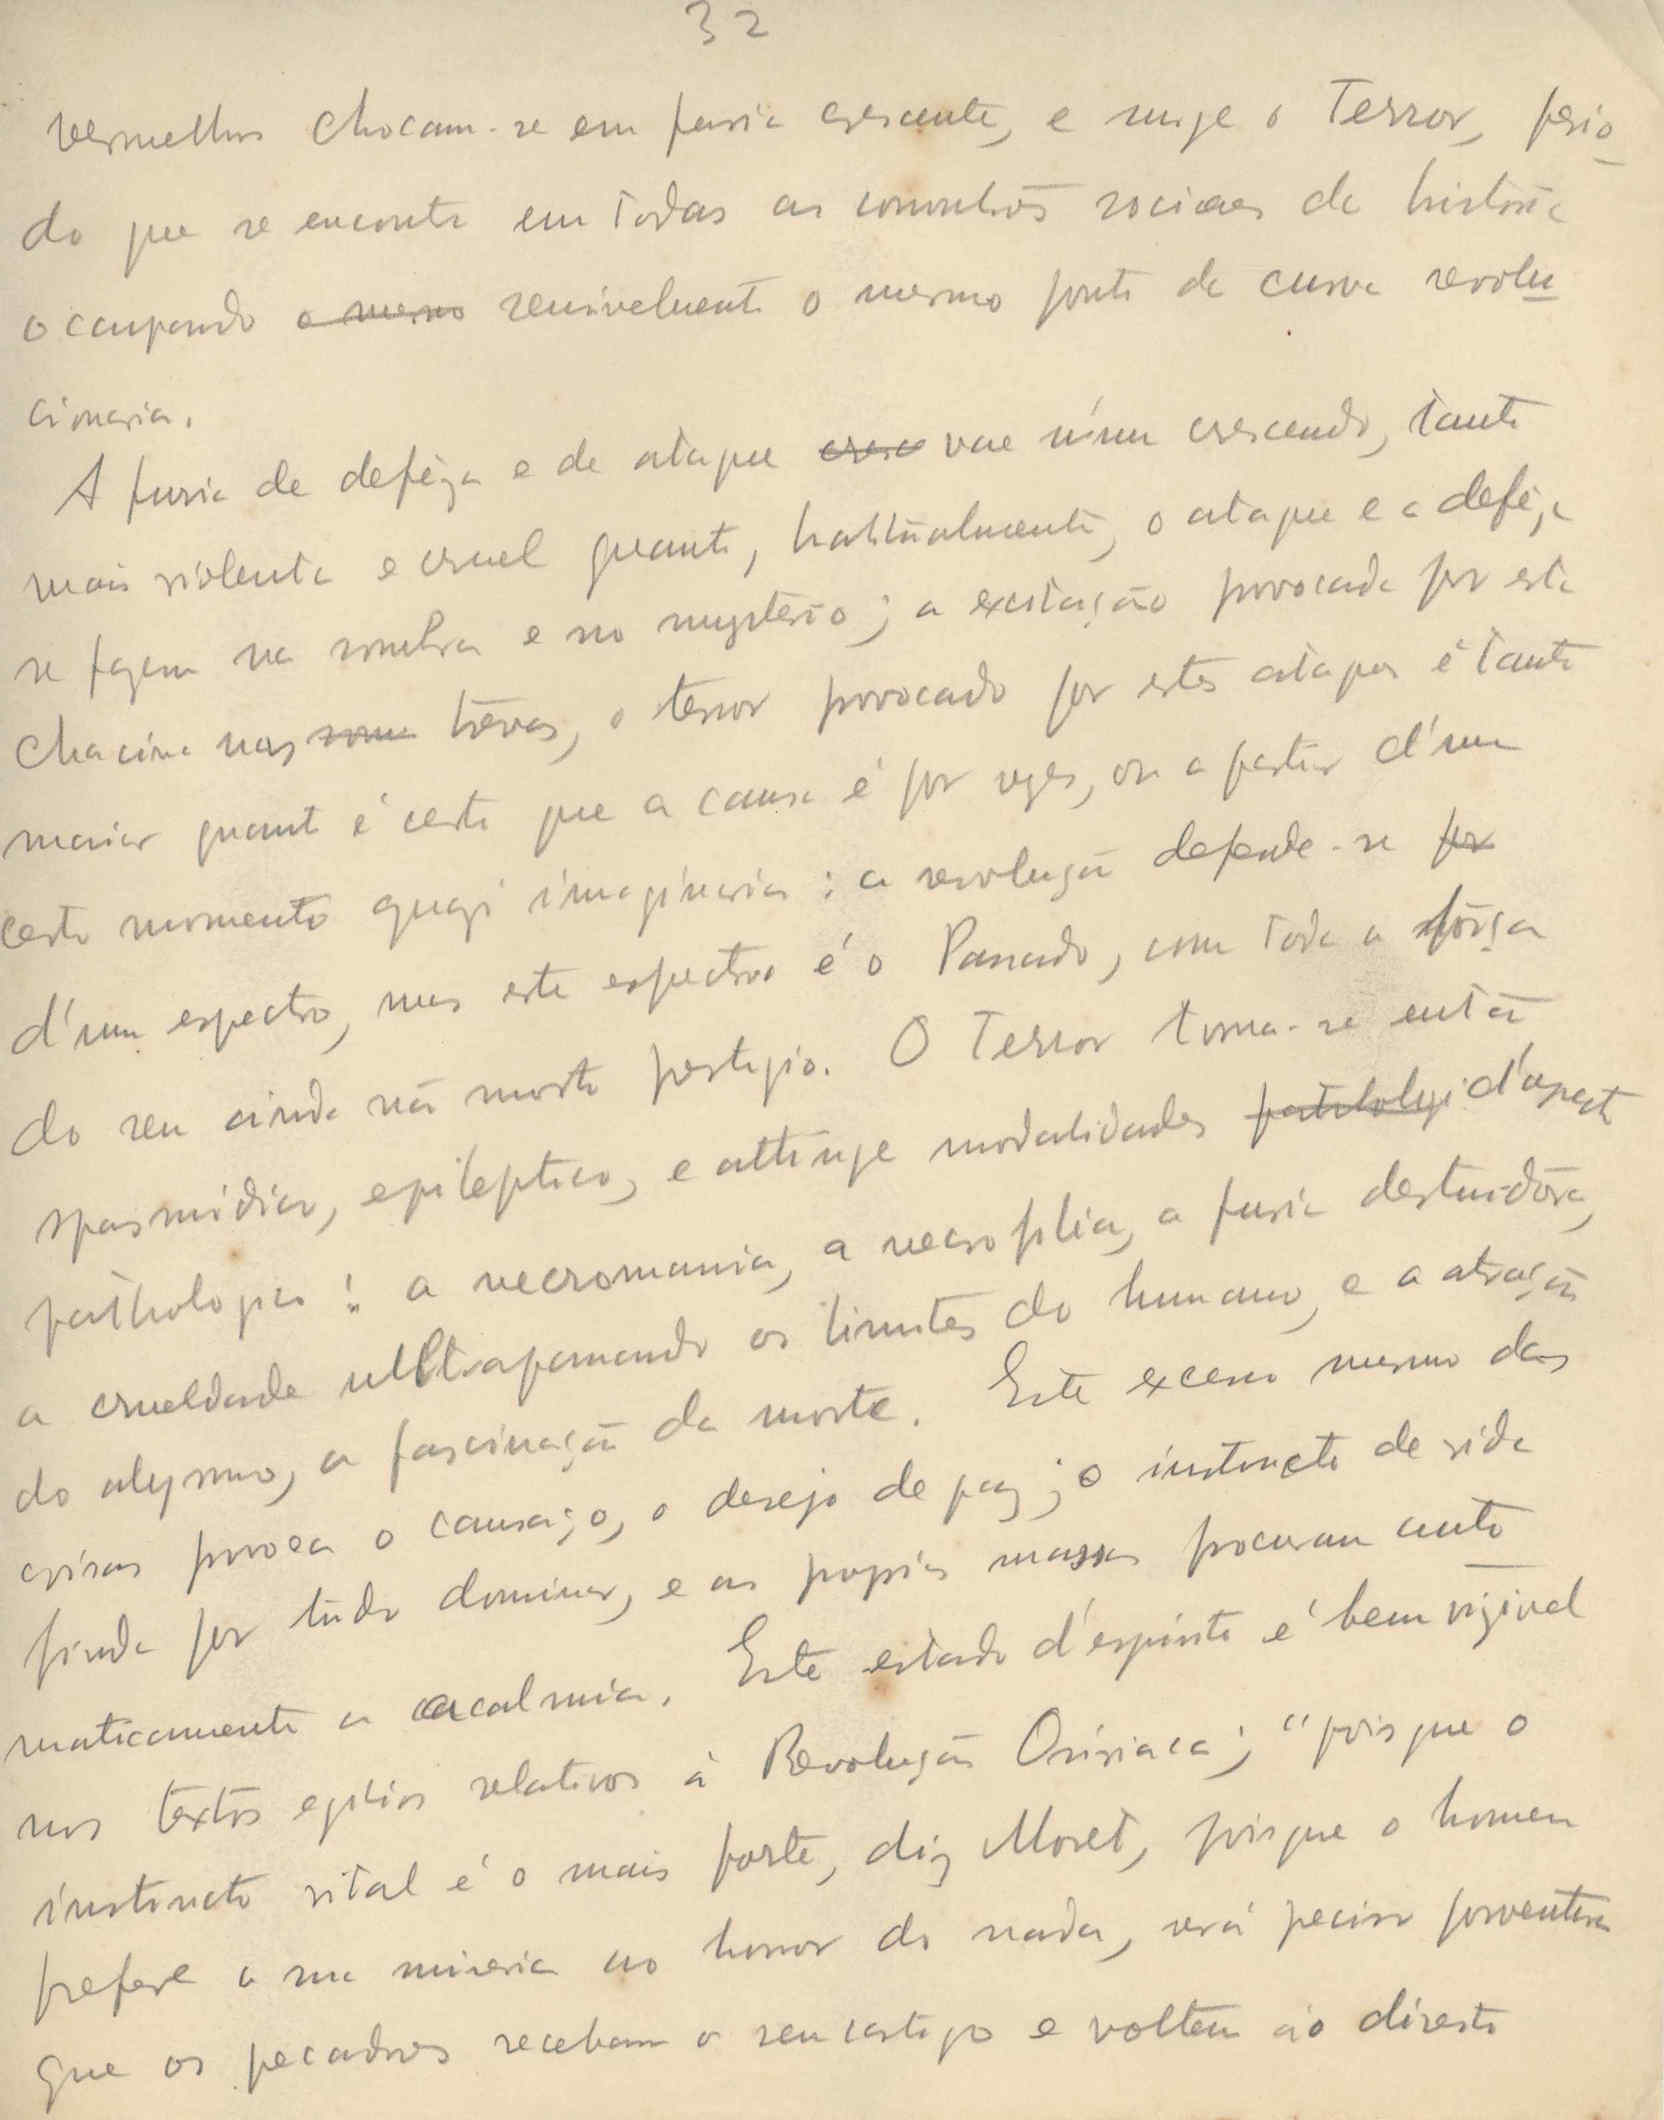 32
vermelhos chocam-se em furia crescente, e surge o Terror, perio
do que se encontra em todas as convulsões sociaes da historia
occupando o mesmo sensivelmente o mesmo ponto da curva revolu
cionaria.
A furia de defêza e de ataque cresce vae n'um crescendo, tanto
mais violenta e cruel quanto, habitualmente, o ataque e a defêza
se fazem na sombra e no mysterio; a excitação provocada por esta
chacina nas som trevas, o terror provocado por estes ataques é tanto
maior quanto é certo que a causa é por vezes, ou a partir d'um
certo momento quazi imaginaria: a revolução defende-se por
d'um espectro, mas este espectro é o Passado, com toda a fôrça
do seu ainda não morto prestigio. O Terror torna-se então
spasmódico, epileptico, e attinge modalidades pathologi d'aspecto
pathologico: a necromania, a necrophilia, a furia destruidôra,
a crueldade ultrapassando os limites do humano, e a atração
do abysmo, a fascinação da morte. Este excesso mesmo das
crises provoca o cansaço, o desejo de paz; o instincto de vida
finda por tudo dominar, e as proprias massas procuram auto
maticamente a acalmia. Este estado d'espirito é bem vizivel
nos textos egipcios relativos á Revolução Osiriaca; "pois que o
instincto vital é o mais forte, diz Moret, pois que o homem
prefere a sua miseria ao horror do nada, será preciso porventura
que os pecadores recebam o seu castigo e voltem ao direito